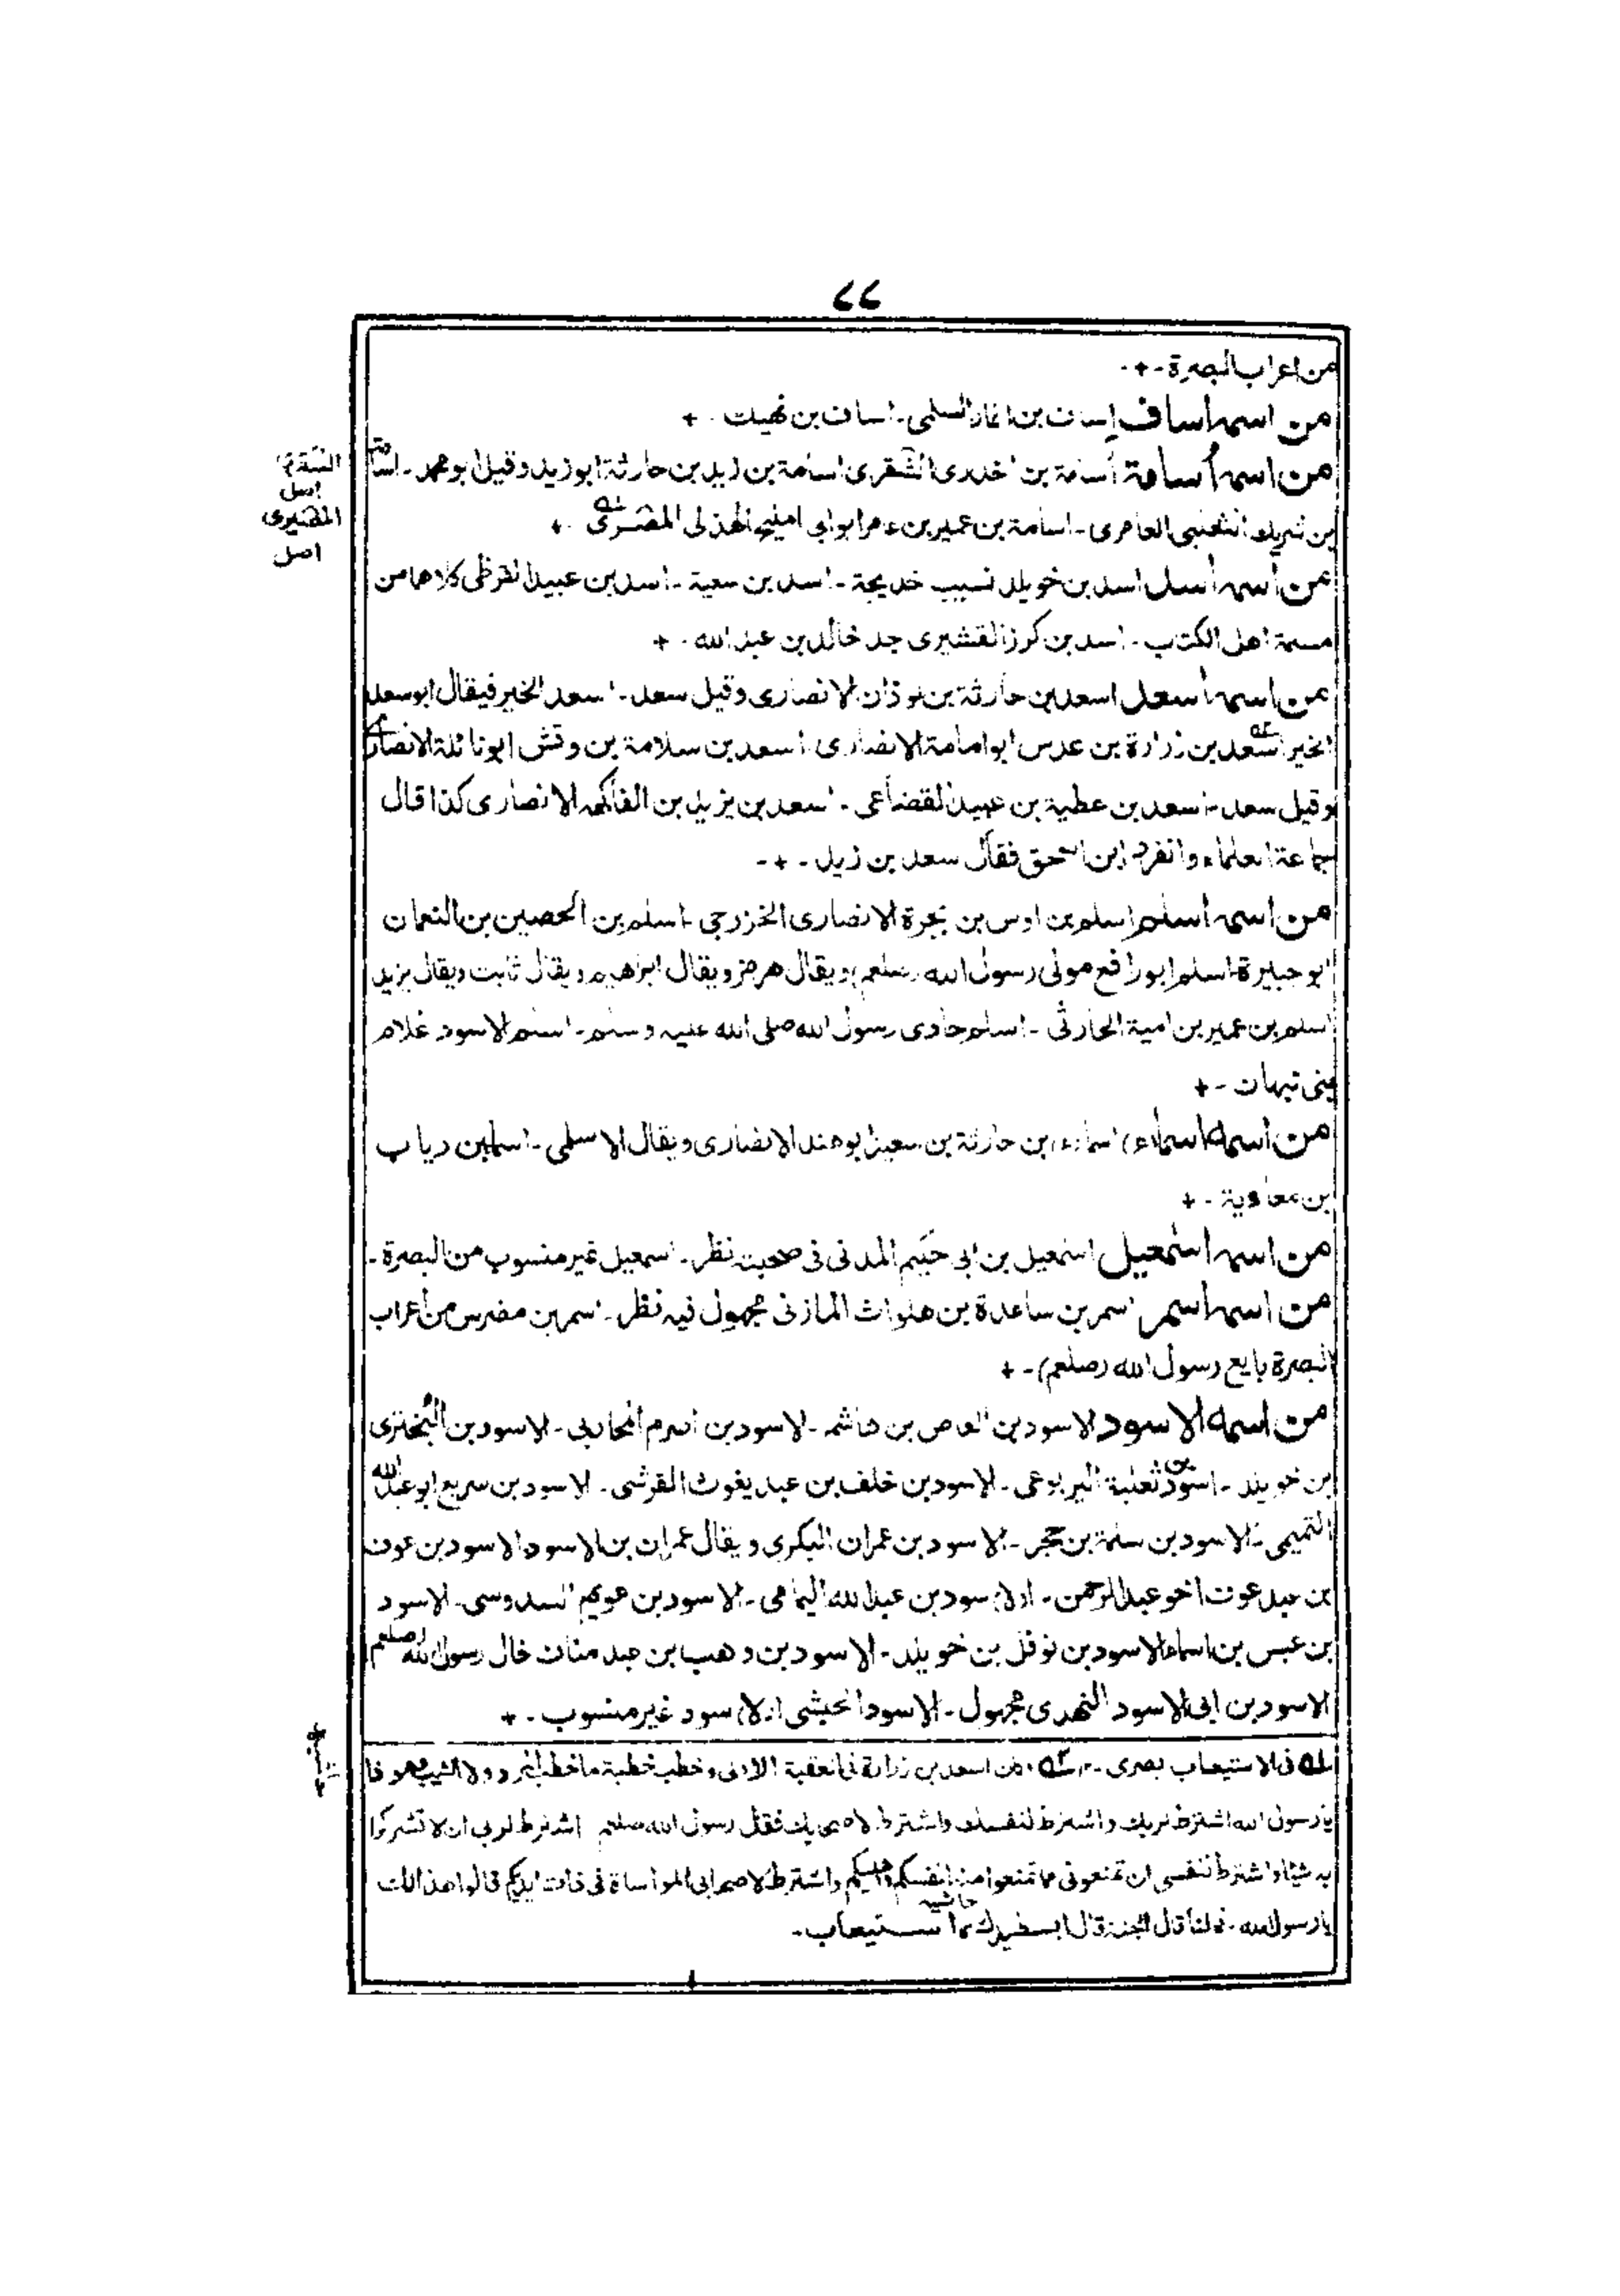 ٢٢
من اعراب البصرة - + -
من اسمه اساف إساف بن انمار السلمى - اساف بن نهيك - +
من اسمه أسامة أسامة بن اخدرى الشقرى اسامة بن زيد بن حارثة ابو زيد وقيل ابو محمد - اسامة
بن شريك الثعلبى العامرى - اسامة بن عمير بن عامر ابو ابى المليح الهذلى المصرى - +
من اسمه أسد اسد بن خويلد نسيب خديجة - اسد بن سعية - اسد بن عبيد القرظى كلاهما من
مسلمة اهل الكتاب - اسد بن كرز القشيرى جد خالد بن عبد الله - +
من اسمه أسعد اسعد بن حارثة بن لوذان الانصارى وقيل سعد - اسعد الخير فيقال ابو سعد
الخير اسعد بن زرارة بن عدس ابو امامة الانصارى اسعد بن سلامة بن وقش ابو نائلة الانصارى
وقيل سعد - اسعد بن عطية بن عبيد القضاعى - اسعد بن يزيد بن الفاكه الانصارى كذا قال
جماعة العلماء وانفرد ابن اسحق فقال سعد بن زيد - + -
من اسمه أسلم اسلم بن اوس بن بجرة الانصارى الخزرجى - اسلم بن الحصين بن النعمان
ابو جبيرة اسلم ابو رافع مولى رسول الله (صلعم) ويقال هرمز ويقال ابراهيم ويقال ثابت ويقال يزيد
اسلم بن عمير بن امية الحارثى - اسلم حادى رسول الله صلى الله عليه وسلم - اسلم الاسود غلام
بنى نبهان - +
من اسمه اسماء اسماء بن حارثة بن سعيد ابو هند الانصارى ويقال الاسلمى - اسماء بن رياب
بن معاوية - +
من اسمه اسمعيل اسمعيل بن ابى حكيم المدنى فى صحبته نظر - اسمعيل غير منسوب من البصرة -
من اسمه أسمر اسمر بن ساعدة بن هلواث المازنى مجهول فيه نظر - اسمر بن مضرس من أعراب
البصرة بايع رسول الله (صلعم) - +
من اسمه الاسود الاسود بن العاص بن هاشم - الاسود بن اصرم المحاربى - الاسود بن البختزى
بن خويلد - اسود بن ثعلبة اليربوعى - الاسود بن خلف بن عبد يغوث القرشى - الاسود بن سريع ابو عبد الله
التميمى - الاسود بن سلمة بن حجر - الاسود بن عمران البكرى ويقال عمران بن الاسود الاسود بن عوف
بن عبد عوف اخو عبد الرحمن - الاسود بن عبد الله اليمامى - الاسود بن عويم السدوسى - الاسود
بن عبس بن اسماء الاسود بن نوفل بن خويلد - الاسود بن وهب بن عبد مناف خال رسول الله (صلعم)
الاسود بن ابى الاسود النهدى مجهول - الاسود الحبشى الاسود غير منسوب - +
له فى الاستيعاب بصرى - اسعد بن زرارة فى العقبة الاولى وخطب خطبة ما خطب المرد ولا الشيب
يا رسول الله اشترط لربك واشترط لنفسك واشترط لاصحابك فقال رسول الله صلعم اشترط لربى ان لا تشركوا
به شيئا واشترط لنفسى ان تمنعونى مما تمنعوا منه انفسكم واشترط لاصحابى المواساة فى ذات ايديكم قالوا هذا لك
يا رسول الله - فما لنا قال الجنة قال ابسط يدك حاشيه استيعاب -
اصل
المضيرى
اصل